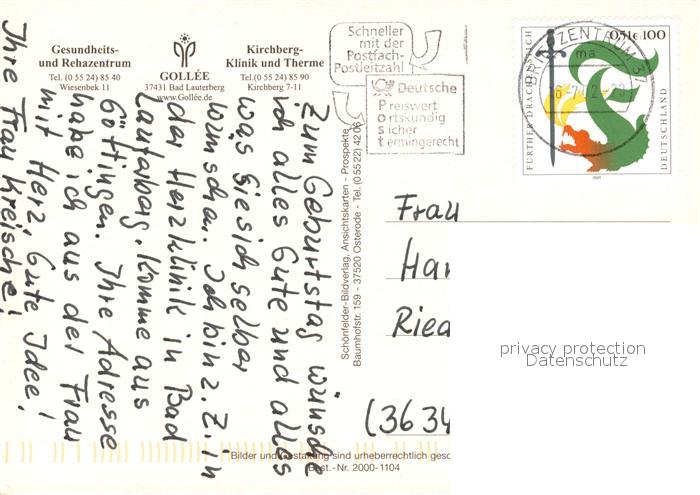 Gesundheits-
und Rehazentrum
Tel. (0 55 24) 85 40
Wiesenbek 11
GOLLÉE
37431 Bad Lauterberg
www.Gollée.de
Kirchberg-
Klinik und Therme
Tel. (0 55 24) 85 90
Kirchberg 7-11
Schneller
mit der
Postfach-
Postleitzahl
Deutsche
Preiswert
ortskundig
sicher
termingerecht
BRIEFZENTRUM 37
ma
FURTHER DRACHENSTICH
0,51€ 100
DEUTSCHLAND
2001
Zum Geburtstag wünsche
ich alles Gute und alles
was Sie sich selber
wünschen. Ich bin z. Z. in
der Herzklinik in Bad
Lauterberg. Komme aus
Göttingen. Ihre Adresse
habe ich aus der Frau
mit Herz, Gute Idee!
Ihre Frau Kreische!
Schönfelder-Bildverlag, Ansichtskarten - Prospekte
Baumhofstr. 159 - 37520 Osterode - Tel. (0 55 22) 42 06
Frau
Han
Ried
(3634
privacy protection
Datenschutz
Bilder und Gestaltung sind urheberrechtlich gesc
Best.-Nr. 2000-1104